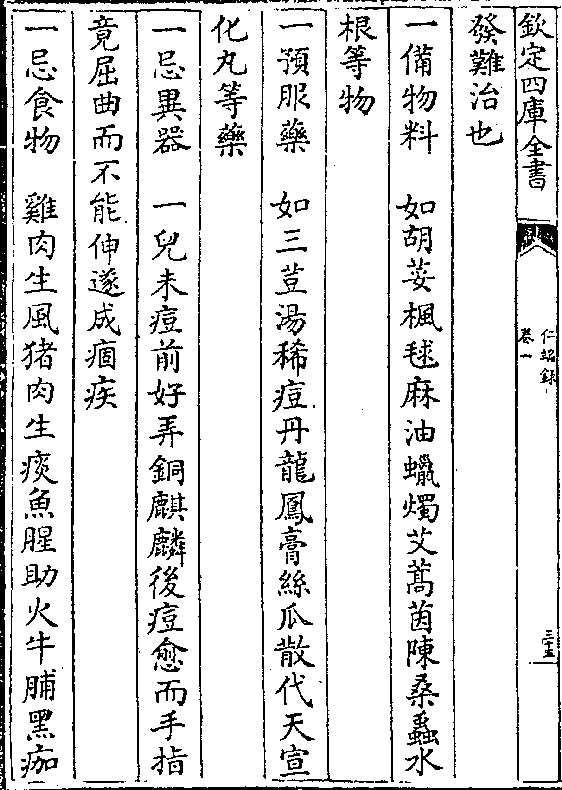 欽定四庫全書
仁端錄
卷一
三十五
發難治也
一備物料　如胡荽楓毬麻油蠟燭艾蒿茵陳桑蝨水
根等物
一預服藥　如三荳湯稀痘丹龍鳳膏絲瓜散代天宣
化丸等藥
一忌異器　一兒未痘前好弄銅麒麟後痘愈而手指
竟屈曲而不能伸遂成痼疾
一忌食物　雞肉生風猪肉生痰魚腥助火牛脯黑痂